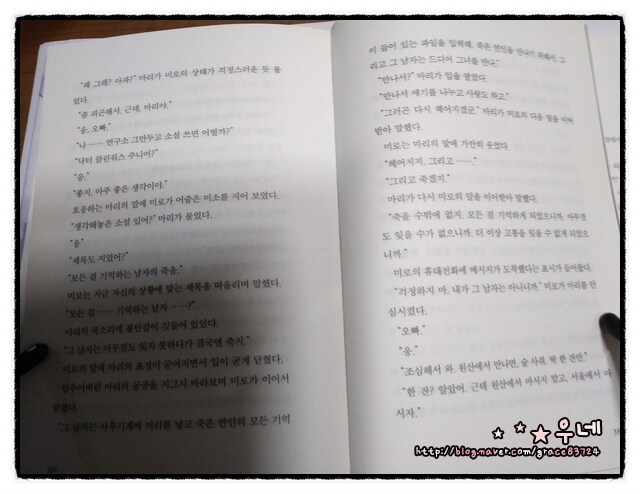 "왜 그래? 아파?" 마리가 미로의 상태가 걱정스러운 듯 물
었다.
"좀 피곤해서. 근데, 마리야."
"응, 오빠."
"나 …… 연구소 그만두고 소설 쓰면 어떨까?"
"닥터 클린워스 주니어?"
"응."
"좋지, 아주 좋은 생각이야."
호응하는 마리의 말에 미로가 어줍은 미소를 지어 보였다.
"생각해놓은 소설 있어?" 마리가 물었다.
"응"
"제목도 지었어?"
"모든 걸 기억하는 남자의 죽음."
미로는 지금 자신의 상황에 맞는 제목을 떠올리며 말했다.
"모든 걸 …… 기억하는 남자 ……?"
마리의 목소리에 불안감이 깃들어 있었다.
"그 남자는 아무것도 잊지 못하다가 결국엔 죽지."
미로의 말에 마리의 표정이 굳어지면서 입이 굳게 닫혔다.
마리의 동공을 지그시 바라보며 미로가 이어서
말했다
"그 남자는 사후기계에 머리를 넣고 죽은 연인의 모든 기억
이 들어 있는 파일을 입력해, 죽은 연인을 만나기 위해서. 그
리고 그 남자는 드디어 그녀를 만나."
"만나서?" 마리가 입을 열었다.
"만나서 얘기를 나누고 사랑도 하고."
"그러곤 다시 헤어지겠군." 마리가 미로의 다음 말을 이어
받아 말했다.
미로는 마리의 말에 가만히 웃었다.
"헤어지지. 그리고 ……."
"그리고 죽겠지."
마리가 다시 미로의 말을 이어받아 말했다.
"죽을 수밖에 없지. 모든 걸 기억하게 되었으니까. 아무것
도 잊을 수가 없으니까. 더 이상 고통을 잊을 수 없게 되었으
니까."
미로의 휴대전화에 메시지가 도착했다는 표시가 들어왔다.
"걱정하지 마. 내가 그 남자는 아니니까." 미로가 마리를 안
심시켰다.
"오빠."
"응."
"조심해서 와. 원산에서 만나면, 술 사줘. 딱 한 잔만."
"한 잔? 알았어. 근데 원산에서 마시지 말고, 서울에서 마
시자."
우네
http://blog.naver.com/grace83724